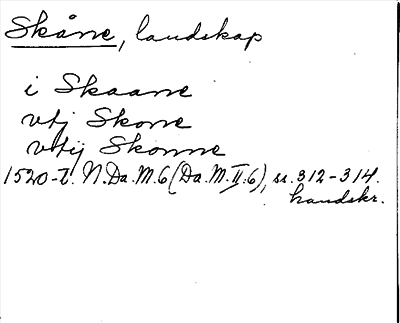 Skåne, landskap
i Skaane
vtj Skone
vttij Skonne
1520-t. N.Da.M.6 (Da.M.II.6), ss.312-314.
handskr.